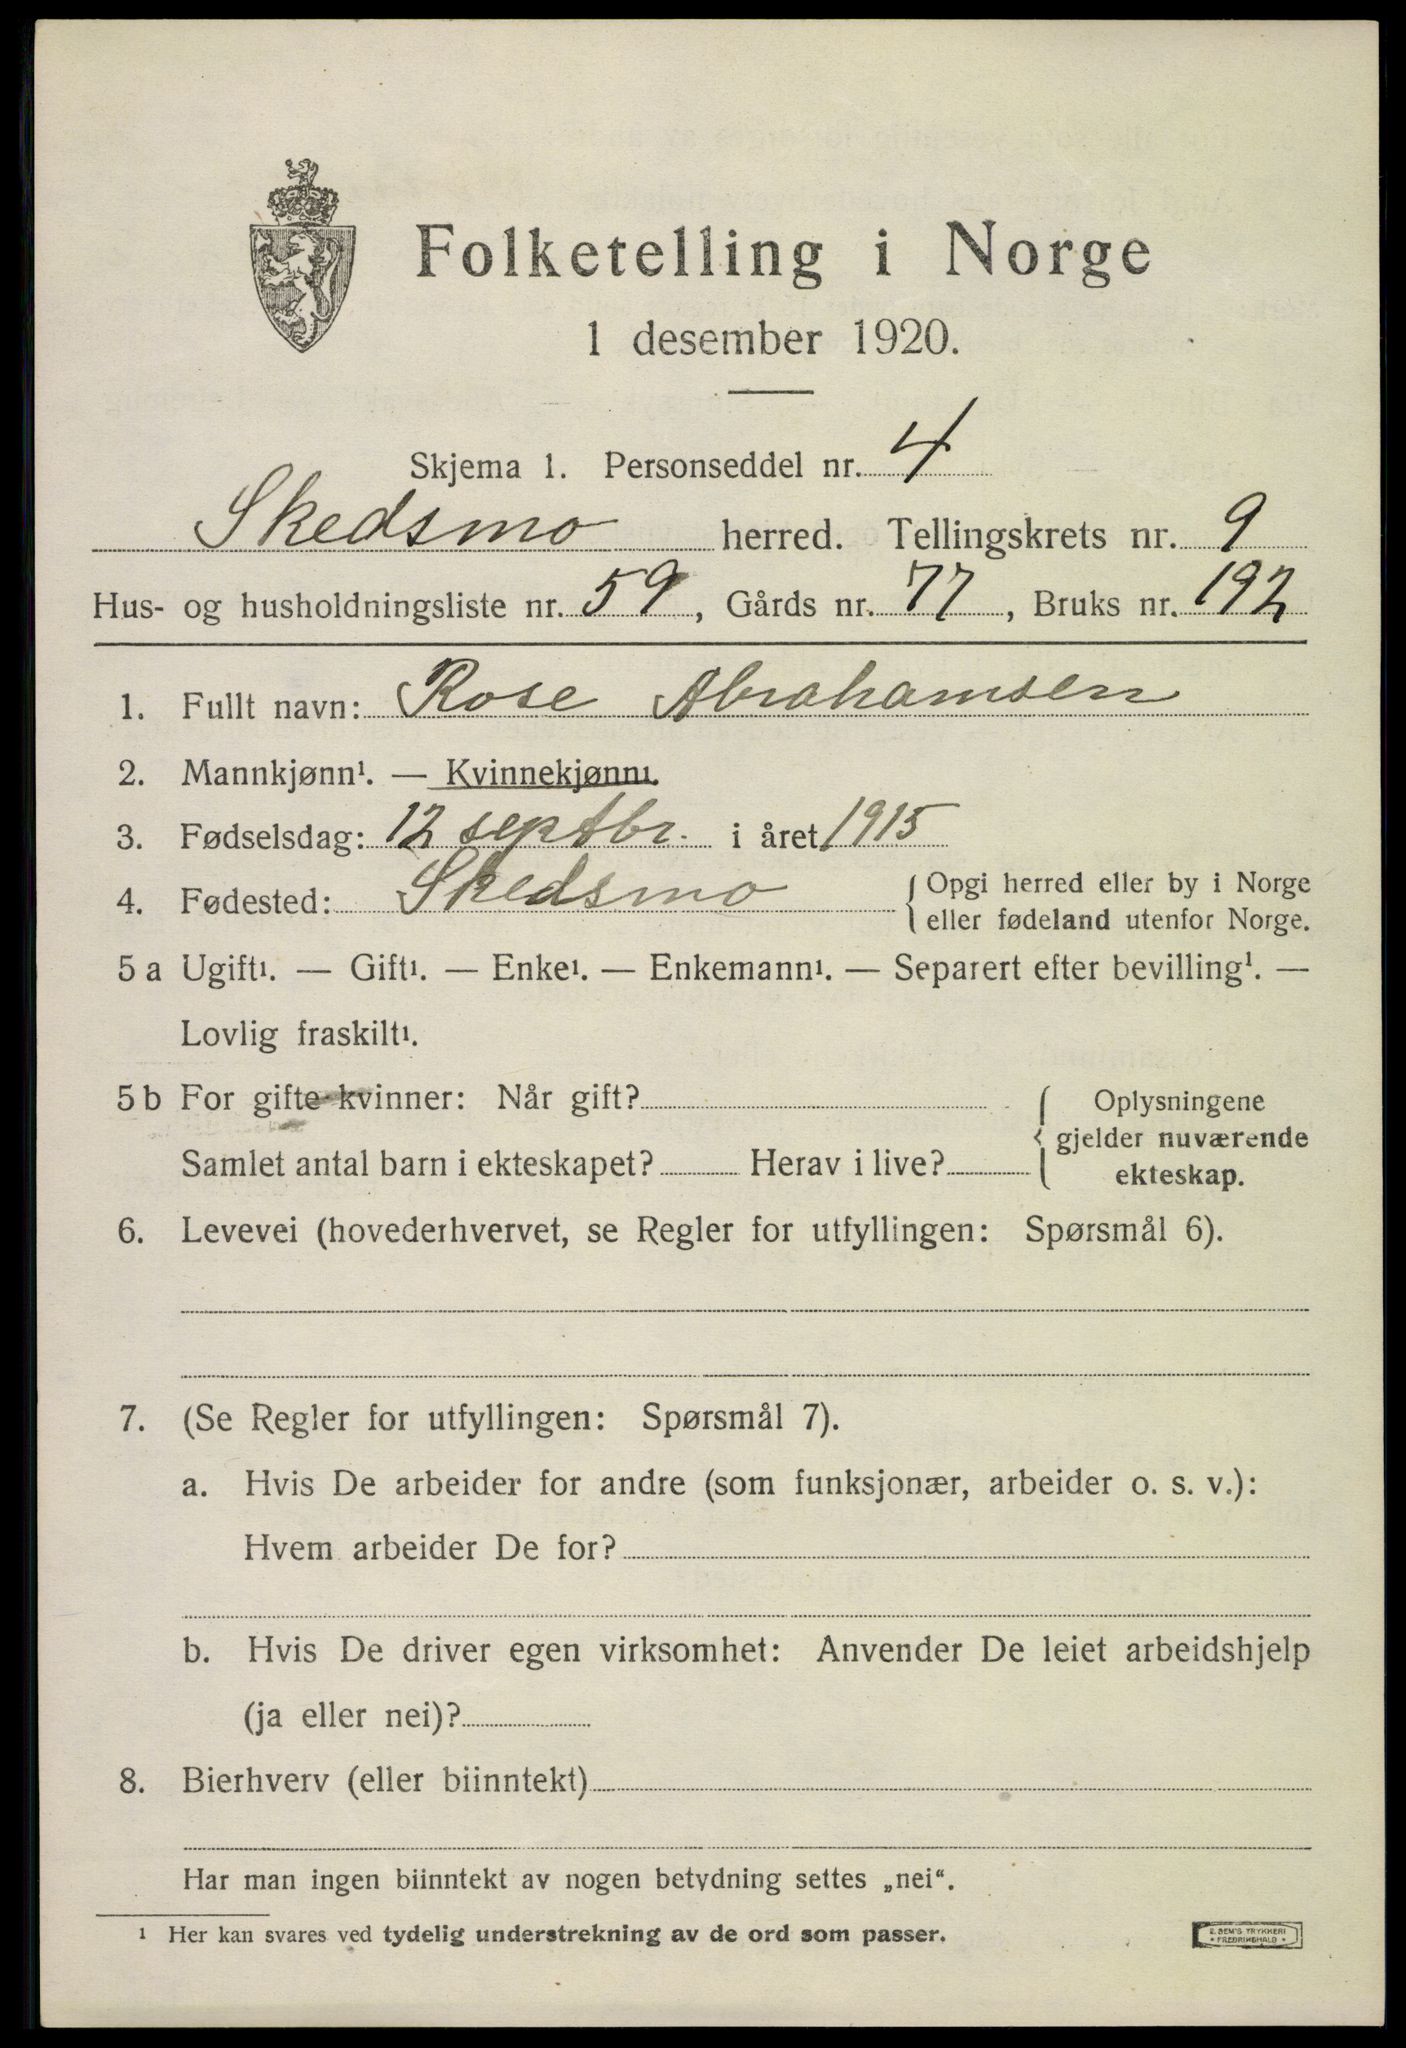 Folketelling i Norge
1 desember 1920.
Skjema 1. Personseddel nr. 4
Skedsmo herred. Tellingskrets nr. 9
Hus- og husholdningsliste nr. 59, Gårds nr. 77, Bruks nr. 192
1. Fullt navn: Rose Abrahamsen
2. Mannkjønn¹. — Kvinnekjønn¹.
3. Fødselsdag: 12 septbr. i året 1915
4. Fødested: Skedsmo { Opgi herred eller by i Norge
eller fødeland utenfor Norge.
5 a Ugift¹. — Gift¹. — Enke¹. — Enkemann¹. — Separert efter bevilling¹. —
Lovlig fraskilt¹.
5 b For gifte kvinner: Når gift? { Oplysningene
gjelder nuværende
Samlet antal barn i ekteskapet? Herav i live? ekteskap.
6. Levevei (hovederhvervet, se Regler for utfyllingen: Spørsmål 6).
7. (Se Regler for utfyllingen: Spørsmål 7).
a. Hvis De arbeider for andre (som funksjonær, arbeider o. s. v.):
Hvem arbeider De for?
b. Hvis De driver egen virksomhet: Anvender De leiet arbeidshjelp
(ja eller nei)?
8. Bierhverv (eller biinntekt)
Har man ingen biinntekt av nogen betydning settes „nei“.
¹ Her kan svares ved tydelig understrekning av de ord som passer.
E. SEM'S TRYKKERI
• FREDRIKSHALD •